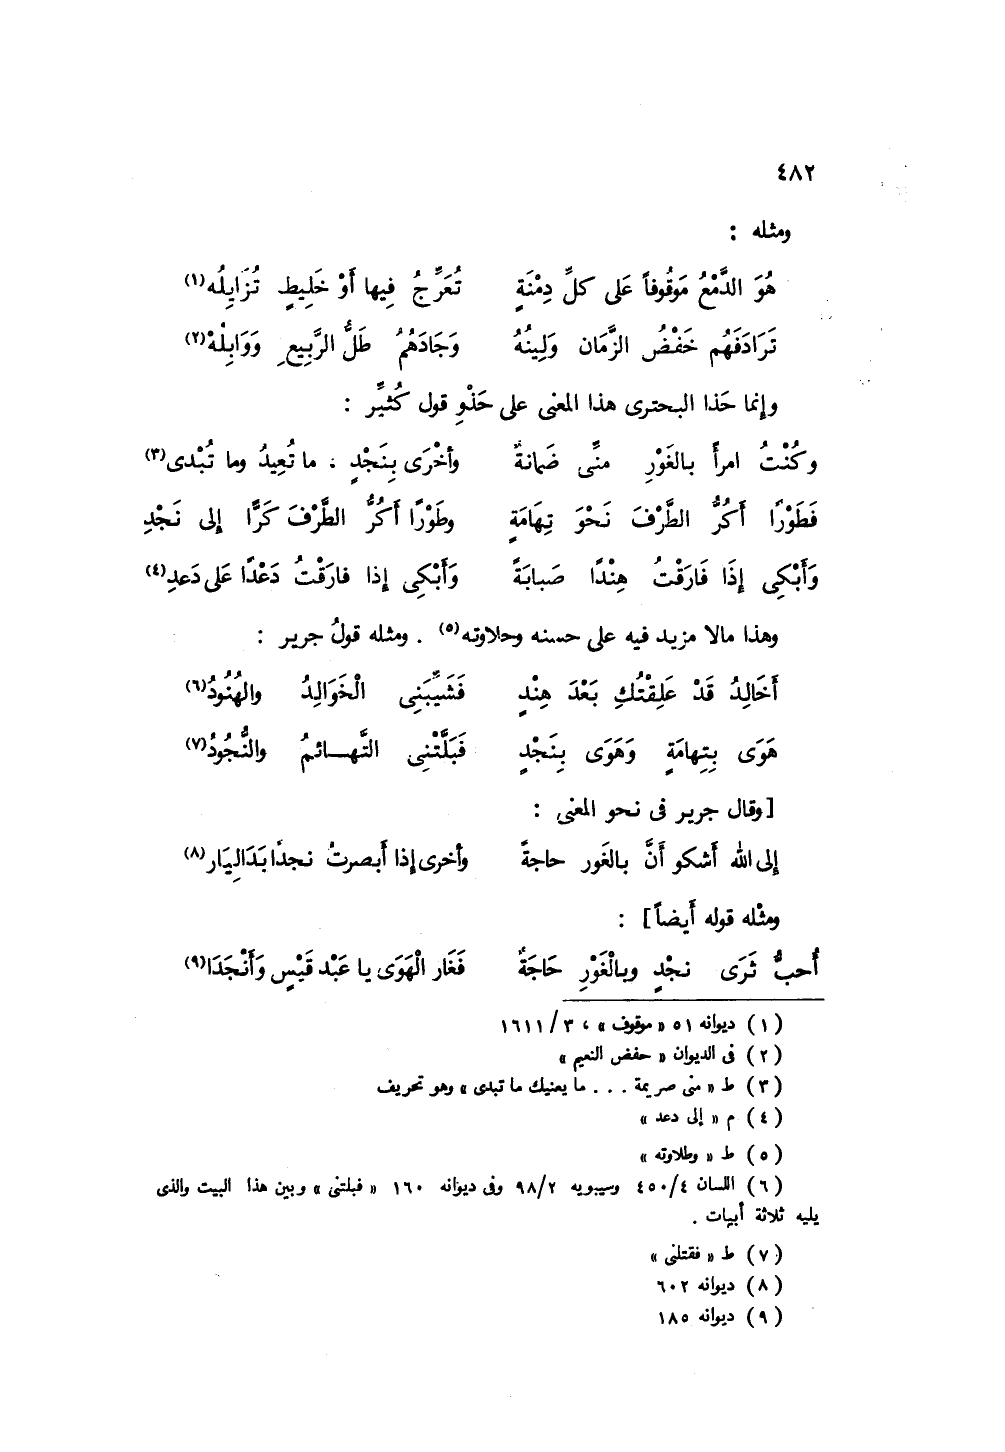 ٤٨٢
ومثله :
هُوَ الدَّمْعُ مَوقُوفاً عَلى كلِّ دِمْنَةٍ تُعَرِّجُ فِيها أَوْ خَلِيطٍ تُزَايِلُه(١)
تَرَادَفَهُم خَفْضُ الزَّمَان وَلِينُهُ وَجَادَهُمُ طَلُّ الرَّبِيعِ وَوَابِلُهْ(٢)
وإنما حَذا البحترى هذا المعنى على حَذْوِ قول كُثيِّر :
وكُنْتُ امرأً بالغَوْرِ منَّى ضَمانةٌ وأخْرَى بِنَجْدٍ ، ما تُعِيدُ وما تُبْدى(٣)
فَطَوْرًا أَكُرُّ الطَّرْفَ نَحْوَ تِهَامَةٍ وطَوْرًا أَكُرُّ الطَّرْفَ كَرًّا إلى نَجْدِ
وَأَبْكِى إِذَا فَارَقْتُ هِنْدًا صَبابَةً وَأَبْكِى إذا فارَقْتُ دَعْدًا عَلى دَعدِ(٤)
وهذا مالا مزيد فيه على حسنه وحلاوته(٥) . ومثله قولُ جرير :
أَخَالِدُ قَدْ عَلِقْتُكِ بَعْدَ هِنْدٍ فَشَيَّبَنِى الْخَوَالِدُ والهُنُودُ(٦)
هَوَى بِتِهامَةٍ وَهَوَى بِنَجْدٍ فَبَلَّتْنِى التَّهـائمُ والنُّجُودُ(٧)
[وقال جرير فى نحو المعنى :
إلى الله أَشكو أَنَّ بالغَور حاجةً وأخرى إذا أَبصرتُ نجدًا بَدَالِيَار(٨)
ومثْله قوله أَيضاً] :
أُحبُّ ثَرَى نجْدٍ وبالْغَوْرِ حَاجَةٌ فَغَار الْهَوَى يا عَبْد قَيْسٍ وَأَنْجَدَا(٩)
(١) ديوانه ٥١ « موقوف » ، ٣/ ١٦١١
(٢) فى الديوان « حفض النعيم »
(٣) ط « منى صريمة . . . ما يعنيك ما تبدى » وهو تحريف
(٤) م « إلى دعد »
(٥) ط « وطلاوته »
(٦) اللسان ٤/ ٤٥٠ وسيبويه ٢/ ٩٨ وفى ديوانه ١٦٠ « فبلتنى » وبين هذا البيت والذى
يليه ثلاثة أبيات .
(٧) ط « فقتلنى »
(٨) ديوانه ٦٠٢
(٩) ديوانه ١٨٥